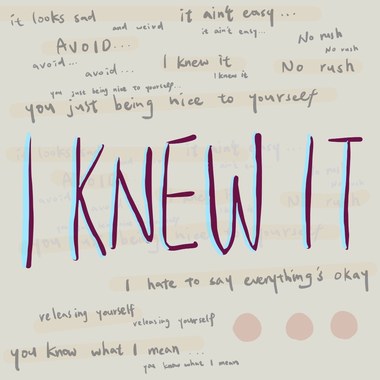 it looks sad
and weird
it ain't easy...
it ain't easy...
No rush
No rush
AVOID...
avoid...
avoid...
I knew it
I knew it
No rush
you just being nice to yourself...
you just being nice to yourself
I KNEW IT
I hate to say everything's okay
releasing yourself
releasing yourself
you know what I mean...
you know what I mean